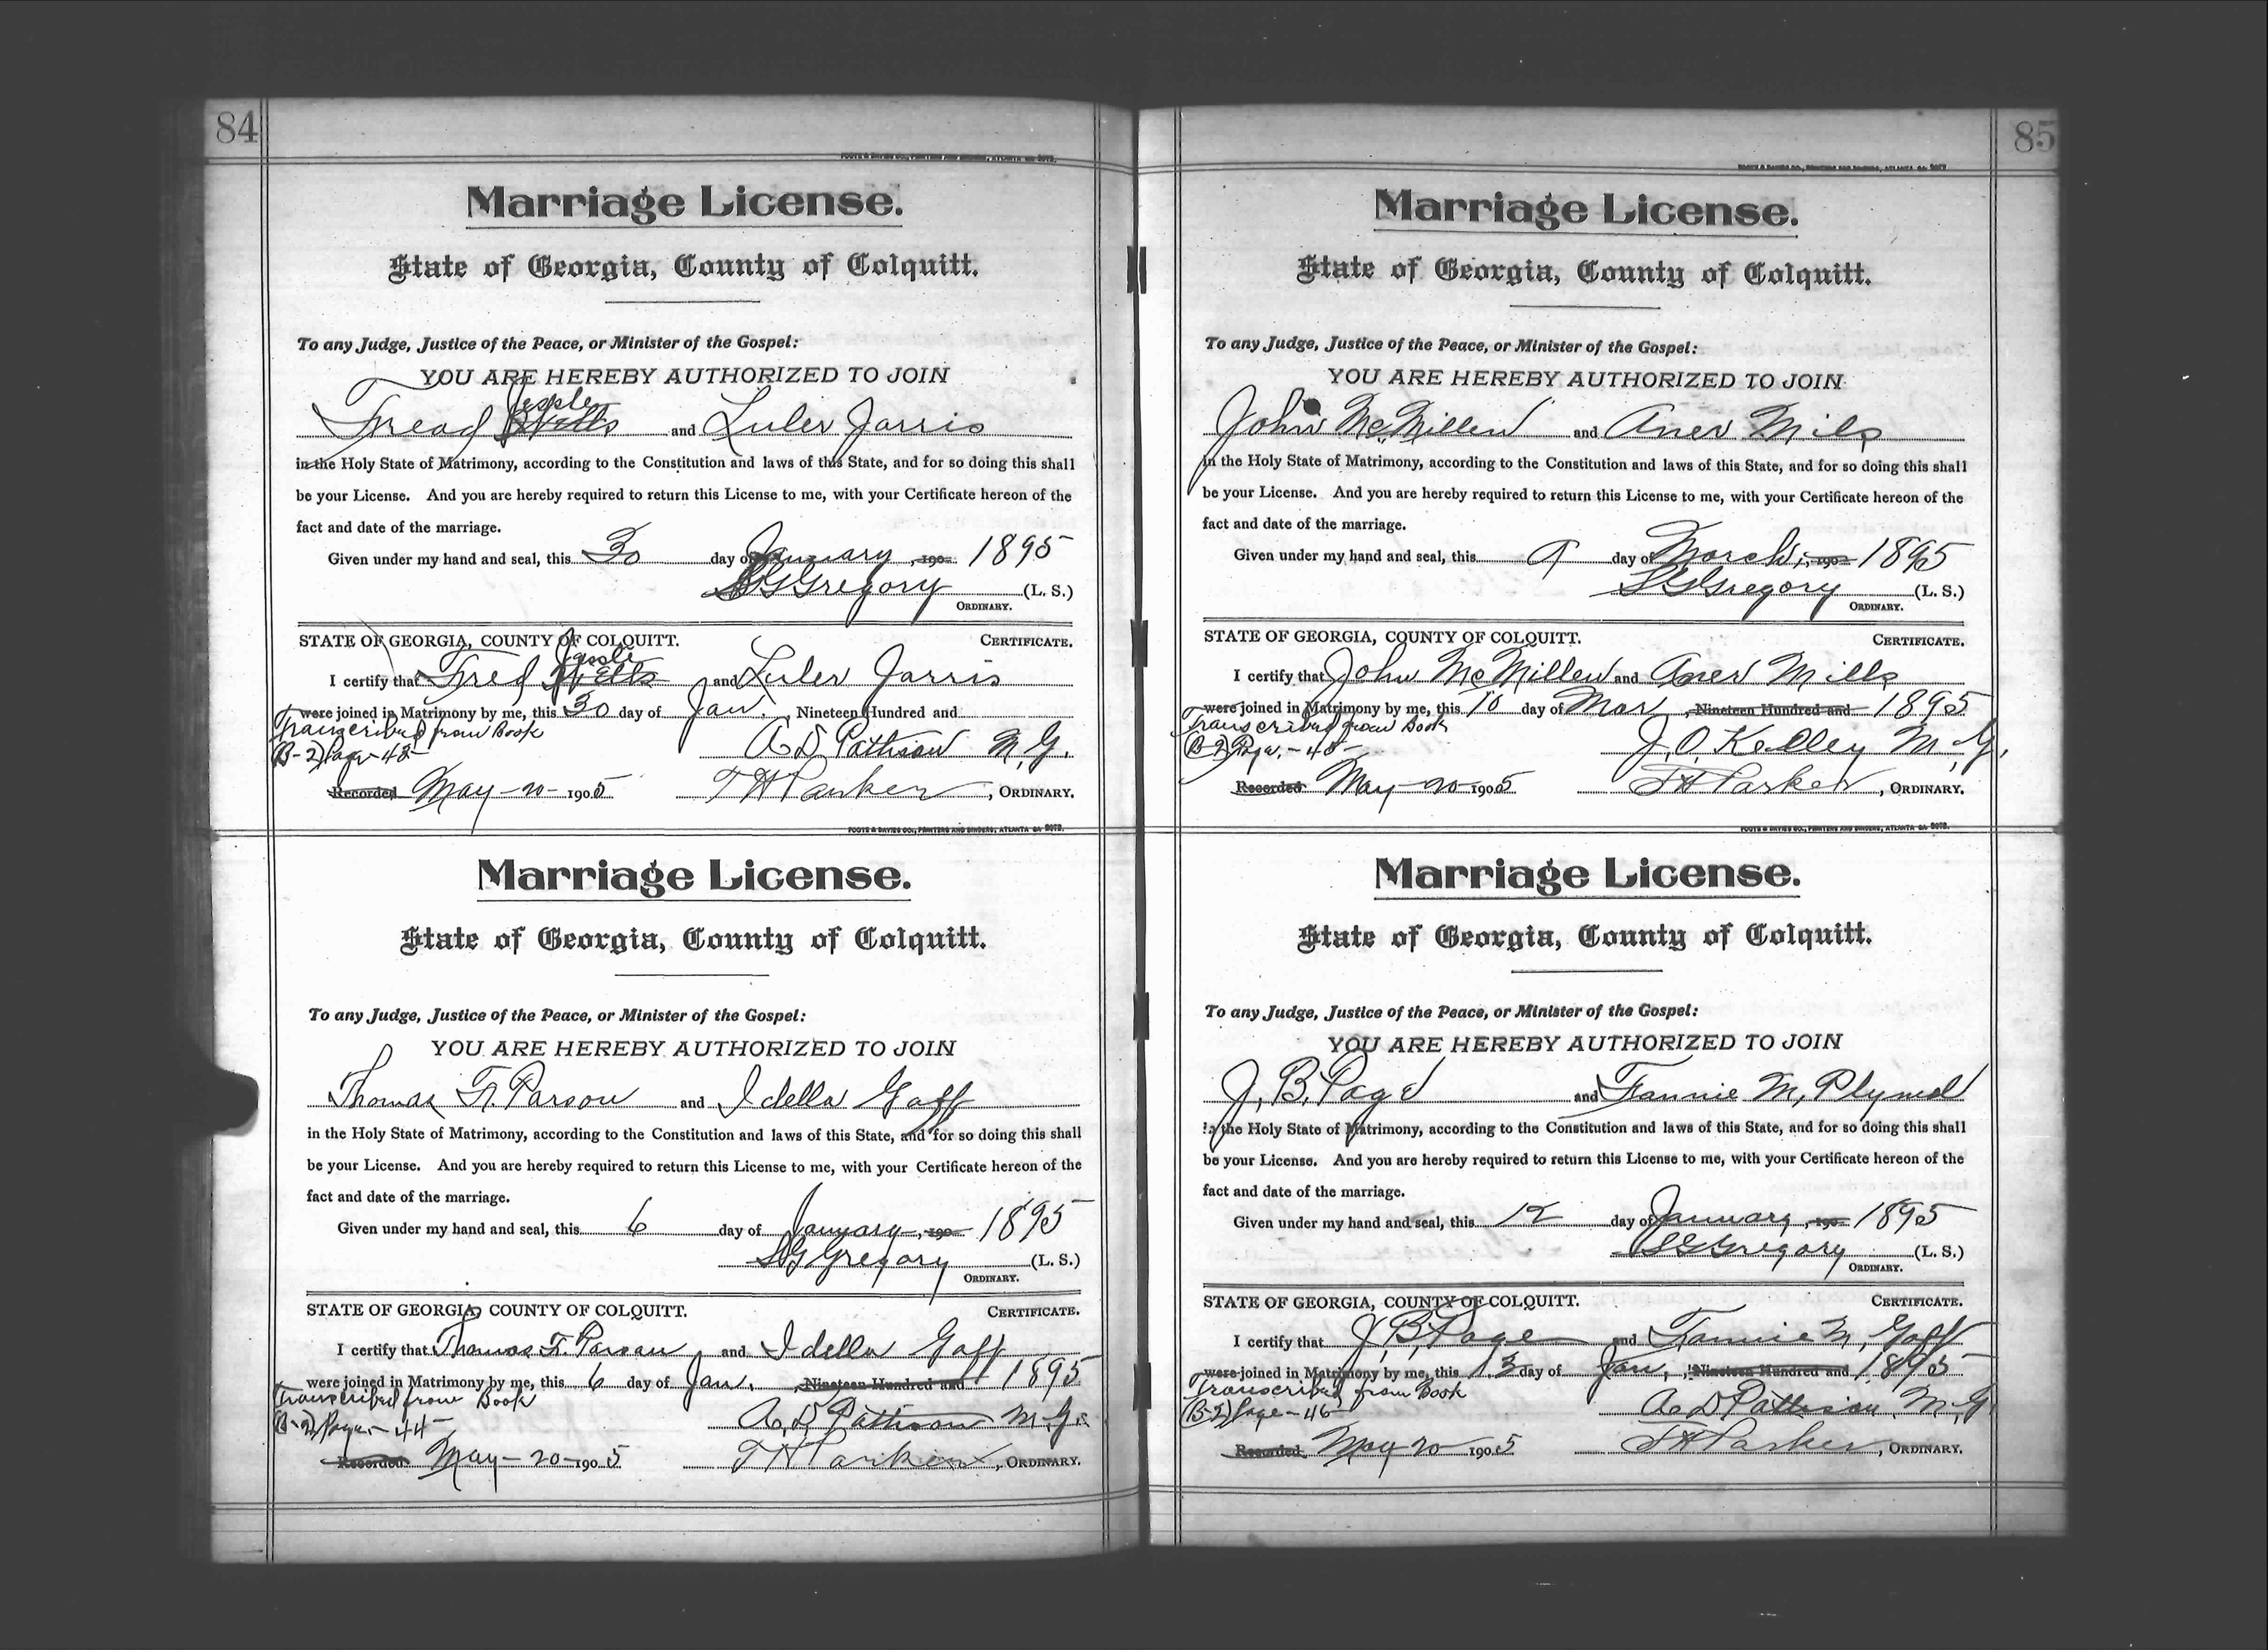 84
FOOTE & DAVIES CO., PRINTERS AND BINDERS, ATLANTA GA
Marriage License.
State of Georgia, County of Colquitt.
To any Judge, Justice of the Peace, or Minister of the Gospel:
YOU ARE HEREBY AUTHORIZED TO JOIN
Jessple
Fread and Luler Jarris
in the Holy State of Matrimony, according to the Constitution and laws of this State, and for so doing this shall
be your License. And you are hereby required to return this License to me, with your Certificate hereon of the
fact and date of the marriage.
Given under my hand and seal, this 30 day of January, 190 1895
S G Gregory (L. S.)
ORDINARY.
STATE OF GEORGIA, COUNTY OF COLQUITT. CERTIFICATE.
I certify that Fred and Luler Jarris
were joined in Matrimony by me, this 30 day of Jan. , Nineteen Hundred and
Transcribed from Book
A. D. Pattison M. G.
(B-2) Page - 43 -
Recorded May - 20 - 1905 T H Parker, ORDINARY.
FOOTE & DAVIES CO., PRINTERS AND BINDERS, ATLANTA GA
Marriage License.
State of Georgia, County of Colquitt.
To any Judge, Justice of the Peace, or Minister of the Gospel:
YOU ARE HEREBY AUTHORIZED TO JOIN
Thomas F. Parson and Idella Goff
in the Holy State of Matrimony, according to the Constitution and laws of this State, and for so doing this shall
be your License. And you are hereby required to return this License to me, with your Certificate hereon of the
fact and date of the marriage.
Given under my hand and seal, this 6 day of January, 190 1895
S G Gregory (L. S.)
ORDINARY.
STATE OF GEORGIA, COUNTY OF COLQUITT. CERTIFICATE.
I certify that Thomas F. Parson and Idella Goff
were joined in Matrimony by me, this 6 day of Jan. , Nineteen Hundred and 1895
Transcribed from Book
A. D. Pattison M. G.
(B-2) Page - 44 -
Recorded May - 20 - 1905 T H Parker, ORDINARY.
85
FOOTE & DAVIES CO., PRINTERS AND BINDERS, ATLANTA GA
Marriage License.
State of Georgia, County of Colquitt.
To any Judge, Justice of the Peace, or Minister of the Gospel:
YOU ARE HEREBY AUTHORIZED TO JOIN
John McMillen and Aner Mils
in the Holy State of Matrimony, according to the Constitution and laws of this State, and for so doing this shall
be your License. And you are hereby required to return this License to me, with your Certificate hereon of the
fact and date of the marriage.
Given under my hand and seal, this 9 day of March, 190 1895
S G Gregory (L. S.)
ORDINARY.
STATE OF GEORGIA, COUNTY OF COLQUITT. CERTIFICATE.
I certify that John McMillen and Aner Mills
were joined in Matrimony by me, this 10 day of Mar , Nineteen Hundred and 1895
Transcribed from Book
J. O. Kelley M. G.
(B-2) Page - 45 -
Recorded May - 20 - 1905 T H Parker, ORDINARY.
FOOTE & DAVIES CO., PRINTERS AND BINDERS, ATLANTA GA
Marriage License.
State of Georgia, County of Colquitt.
To any Judge, Justice of the Peace, or Minister of the Gospel:
YOU ARE HEREBY AUTHORIZED TO JOIN
J. B. Page and Fannie M. Plymel
in the Holy State of Matrimony, according to the Constitution and laws of this State, and for so doing this shall
be your License. And you are hereby required to return this License to me, with your Certificate hereon of the
fact and date of the marriage.
Given under my hand and seal, this 12 day of January, 190 1895
S G Gregory (L. S.)
ORDINARY.
STATE OF GEORGIA, COUNTY OF COLQUITT. CERTIFICATE.
I certify that J. B. Page and Fannie M. Goff
were joined in Matrimony by me, this 13 day of Jan, , Nineteen Hundred and 1895
Transcribed from Book
A. D. Pattison M. G.
(B-2) Page - 46 -
Recorded May 20 1905 T H Parker, ORDINARY.